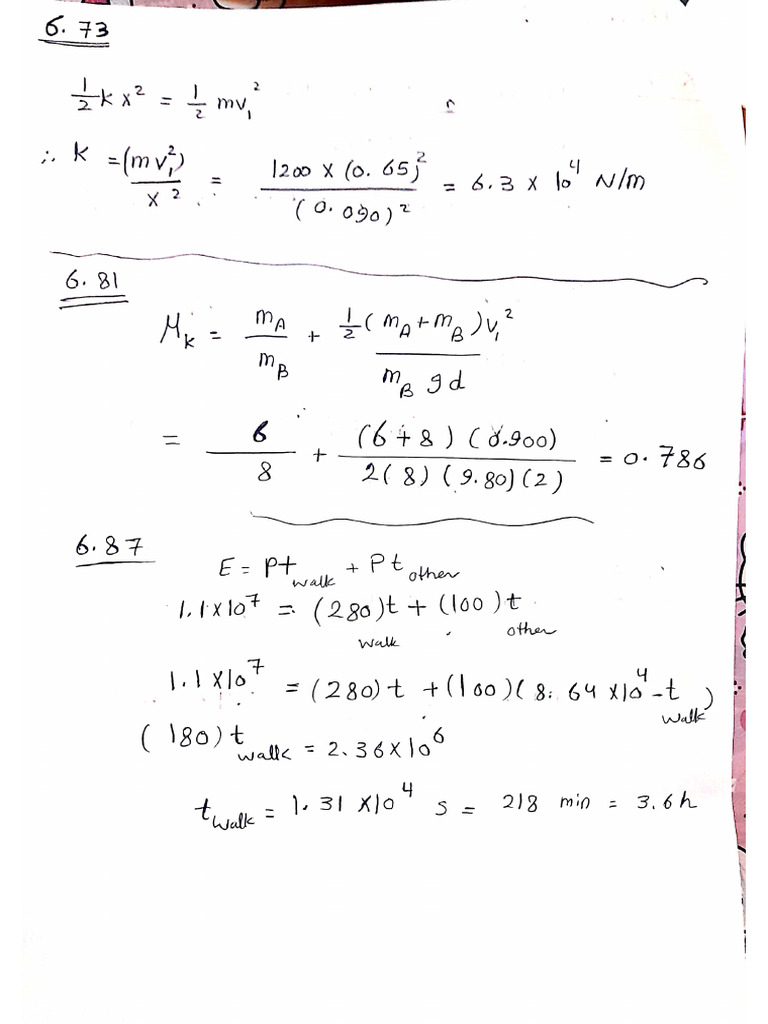 6.73
½ k x² = ½ mv₁²
∴ K = (mv₁²) / x² = 1200 × (0.65)² / (0.090)² = 6.3 × 10⁴ N/m
6.81
μ_k = m_A / m_B + ½(m_A + m_B)v₁² / m_B g d
= 6 / 8 + (6+8)(0.900) / 2(8)(9.80)(2) = 0.786
6.87
E = Pt_walk + Pt_other
1.1×10⁷ = (280)t_walk + (100)t_other
1.1×10⁷ = (280)t + (100)(8.64×10⁴ - t_walk)
(180)t_walk = 2.36×10⁶
t_walk = 1.31×10⁴ s = 218 min = 3.6h